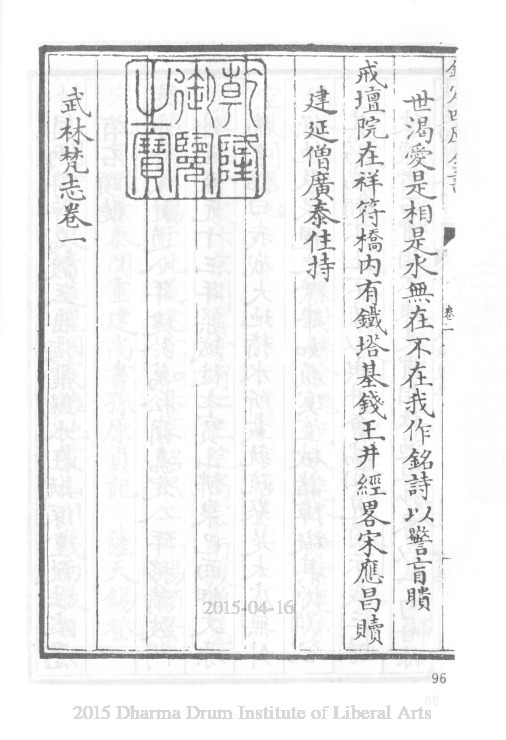 世渴愛是相是水無在不在我作銘詩以警盲瞶
戒壇院在祥符橋內有鐵塔基錢王井經畧宋應昌贖
建延僧廣泰住持
乾隆御覽之寶
武林梵志卷一
卷一
96
2015-04-16
2015 Dharma Drum Institute of Liberal Arts